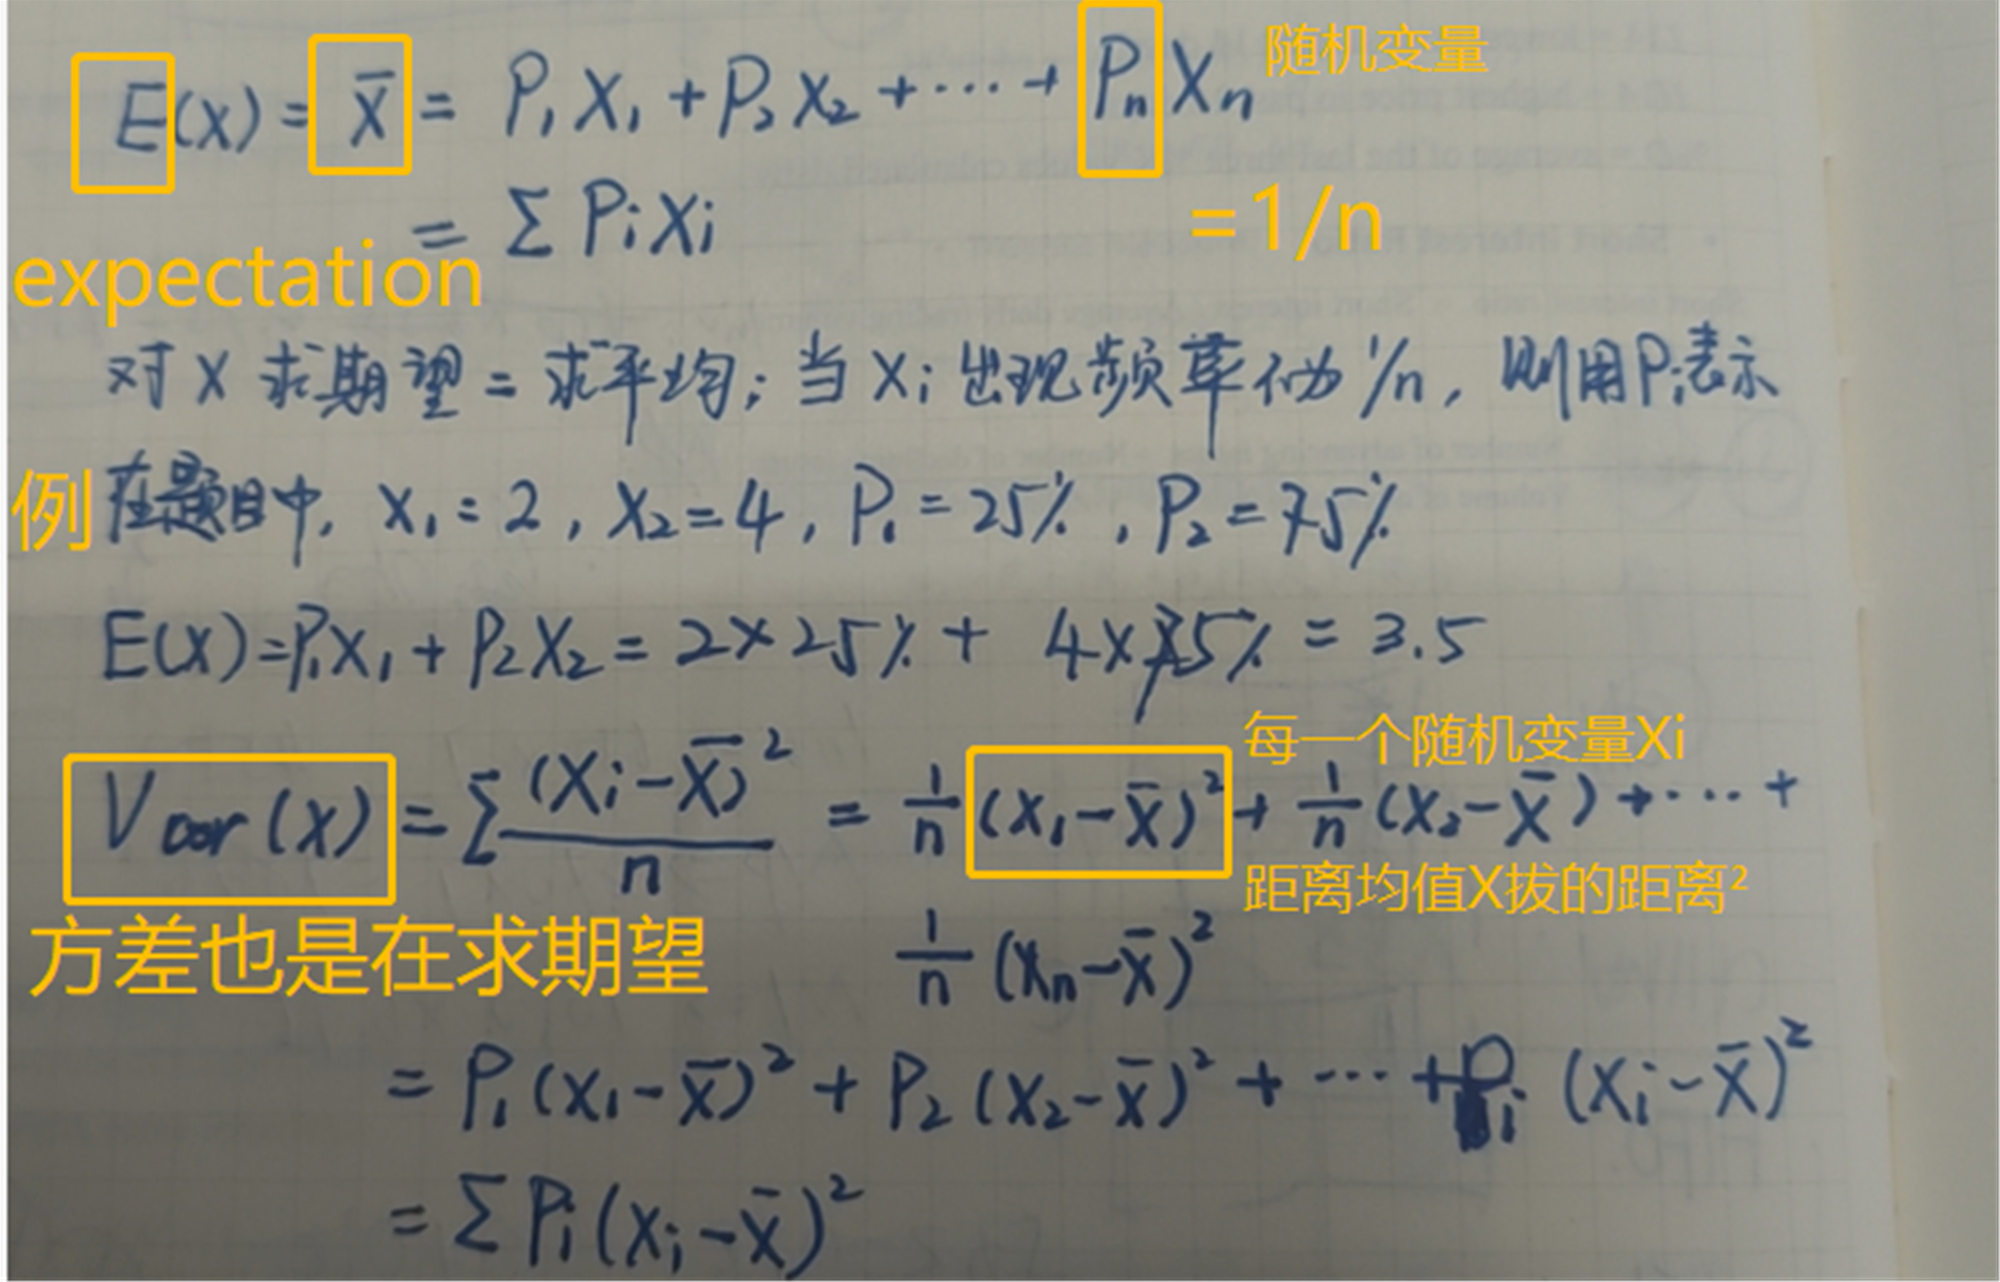 E(X) = X̄ = P₁X₁ + P₂X₂ + ⋯ + PₙXₙ 随机变量
= Σ PᵢXᵢ =1/n
expectation
对 X 求期望 = 求平均; 当 Xᵢ 出现频率不为 1/n, 则用Pᵢ表示
例 在题目中, X₁ = 2, X₂ = 4, P₁ = 25%, P₂ = 75%
E(X) = P₁X₁ + P₂X₂ = 2×25% + 4×75% = 3.5
每一个随机变量Xi
Var(X) = Σ (Xᵢ-X̄)² / n = 1/n (X₁-X̄)² + 1/n (X₂-X̄) + ⋯ +
距离均值X拔的距离²
方差也是在求期望 1/n (Xₙ-X̄)²
= P₁(X₁-X̄)² + P₂(X₂-X̄)² + ⋯ + Pᵢ(Xᵢ-X̄)²
= Σ Pᵢ(Xᵢ-X̄)²